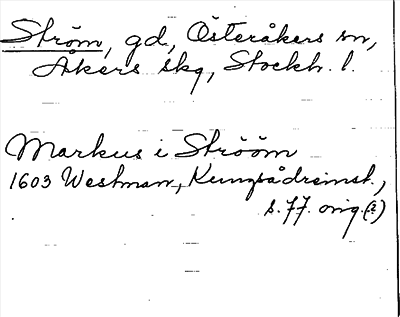 Ström, gd, Österåkers sn,
Åkers skg, Stockh. l.
Markus i Strööm
1603 Westman, Kungsådreinst.,
s. 77. orig.(?)